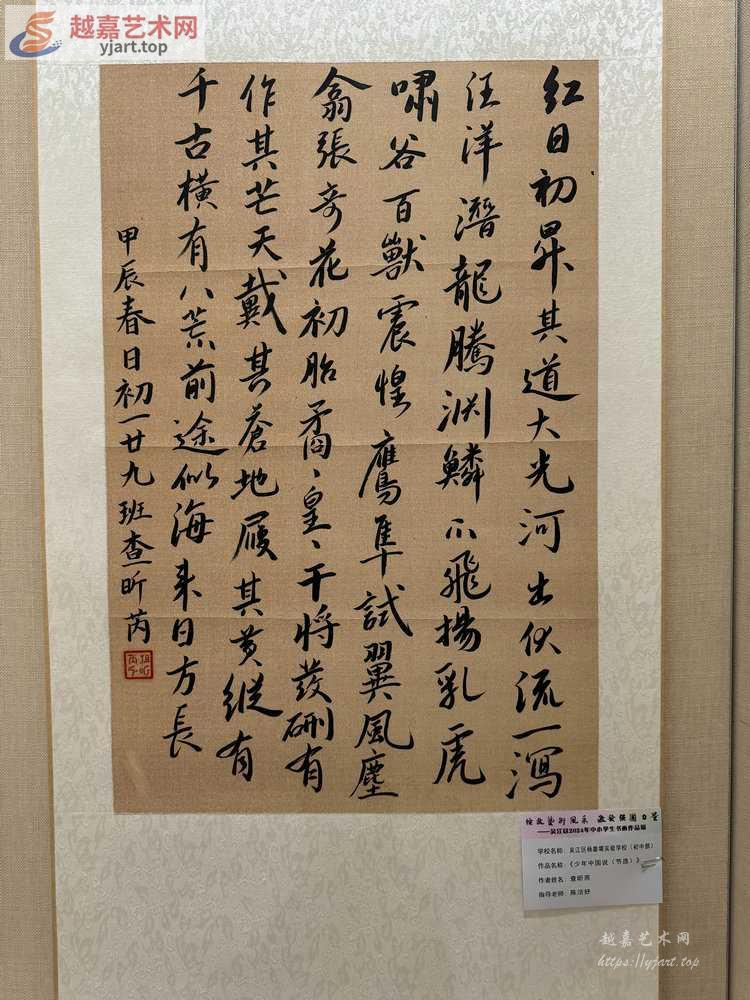 越嘉艺术网
yjart.top
红日初昇其道大光河出伏流一瀉
汪洋潛龍騰淵鱗爪飛揚乳虎
嘯谷百獸震惶鷹隼試翼風塵
翕張奇花初胎矞〻皇〻干将發硎有
作其芒天戴其蒼地履其黄縱有
千古横有八荒前途似海来日方長
甲辰春日初一廿九班查昕芮
——吴江区2024年中小学生书画作品展
学校名称：吴江区杨嘉墀实验学校（初中部）
作品名称：《少年中国说（节选）》
作者姓名：查昕芮
指导老师：陈洁妤
越嘉艺术网
https://yjart.top